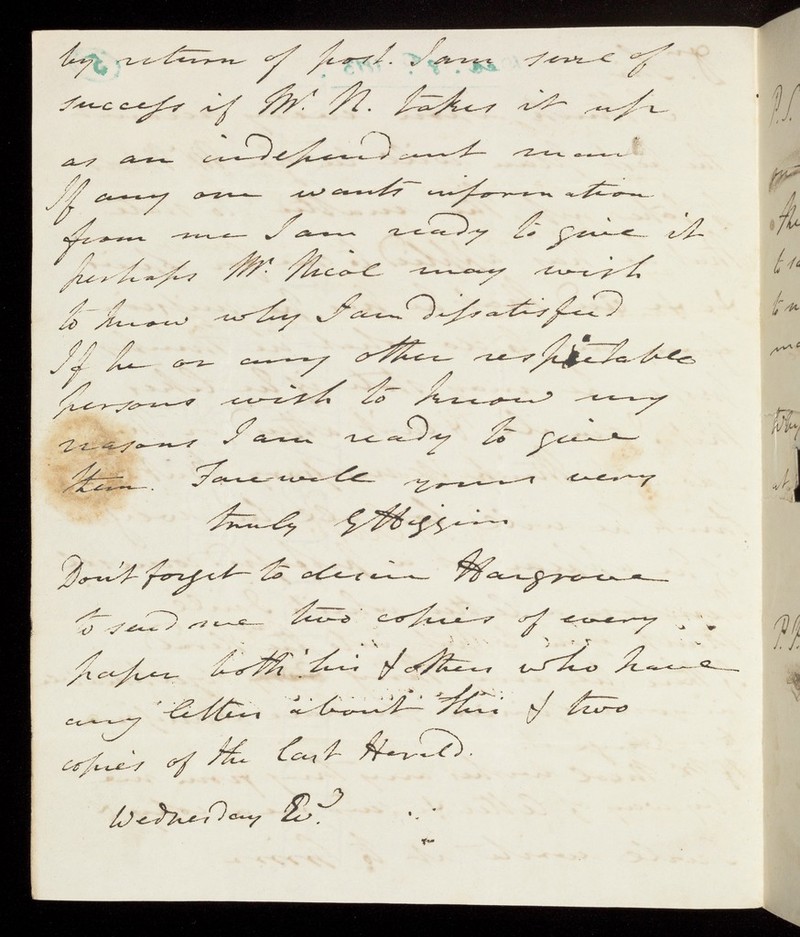 by return of post. I am sure of
success if Mr. N. takes it up
as an independant man
If any one wants information
from me I am ready to give it
perhaps Mr. Nicol may wish
to know why I am dissatisfied
If he or any other respectable
persons wish to know my
reasons I am ready to give
them. Farewell yours very
truly G Higgins
Don't forget to desire Hargrove
to send me two copies of every
paper both his & others who have
any letters about this & two
copies of the last Herald.
Wednesday Ev.g
P.S.
the